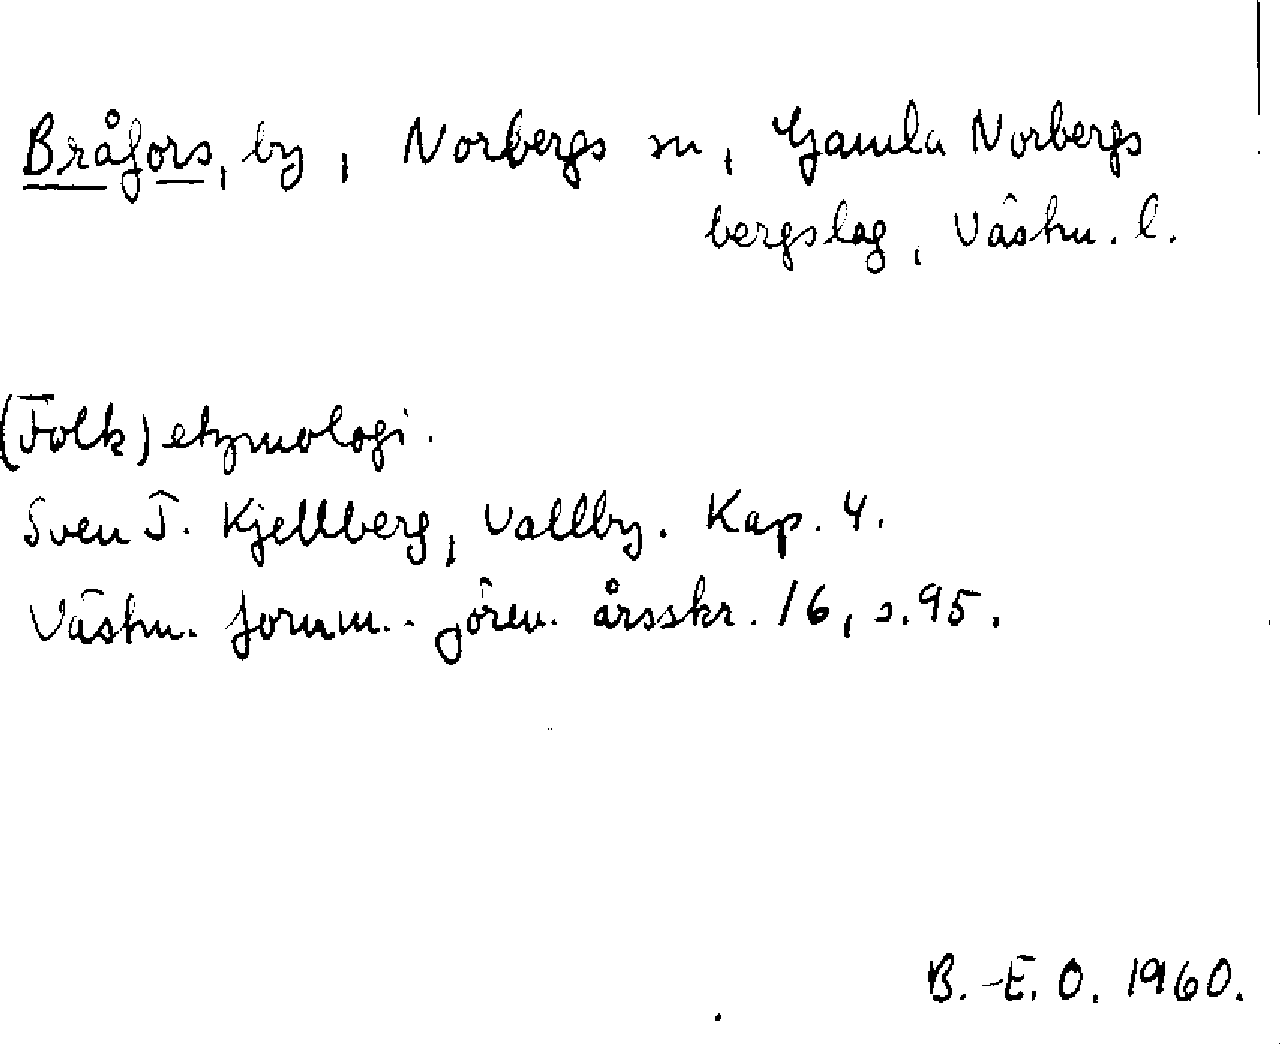 Bråfors, by, Norbergs sn, Gamla Norbergs
bergslag, Västm. l.
(Folk)etymologi.
Sven T. Kjellberg, Vallby. Kap. 4.
Västm. fornm.-fören. årsskr. 16, s. 95.
B.-E. O. 1960.